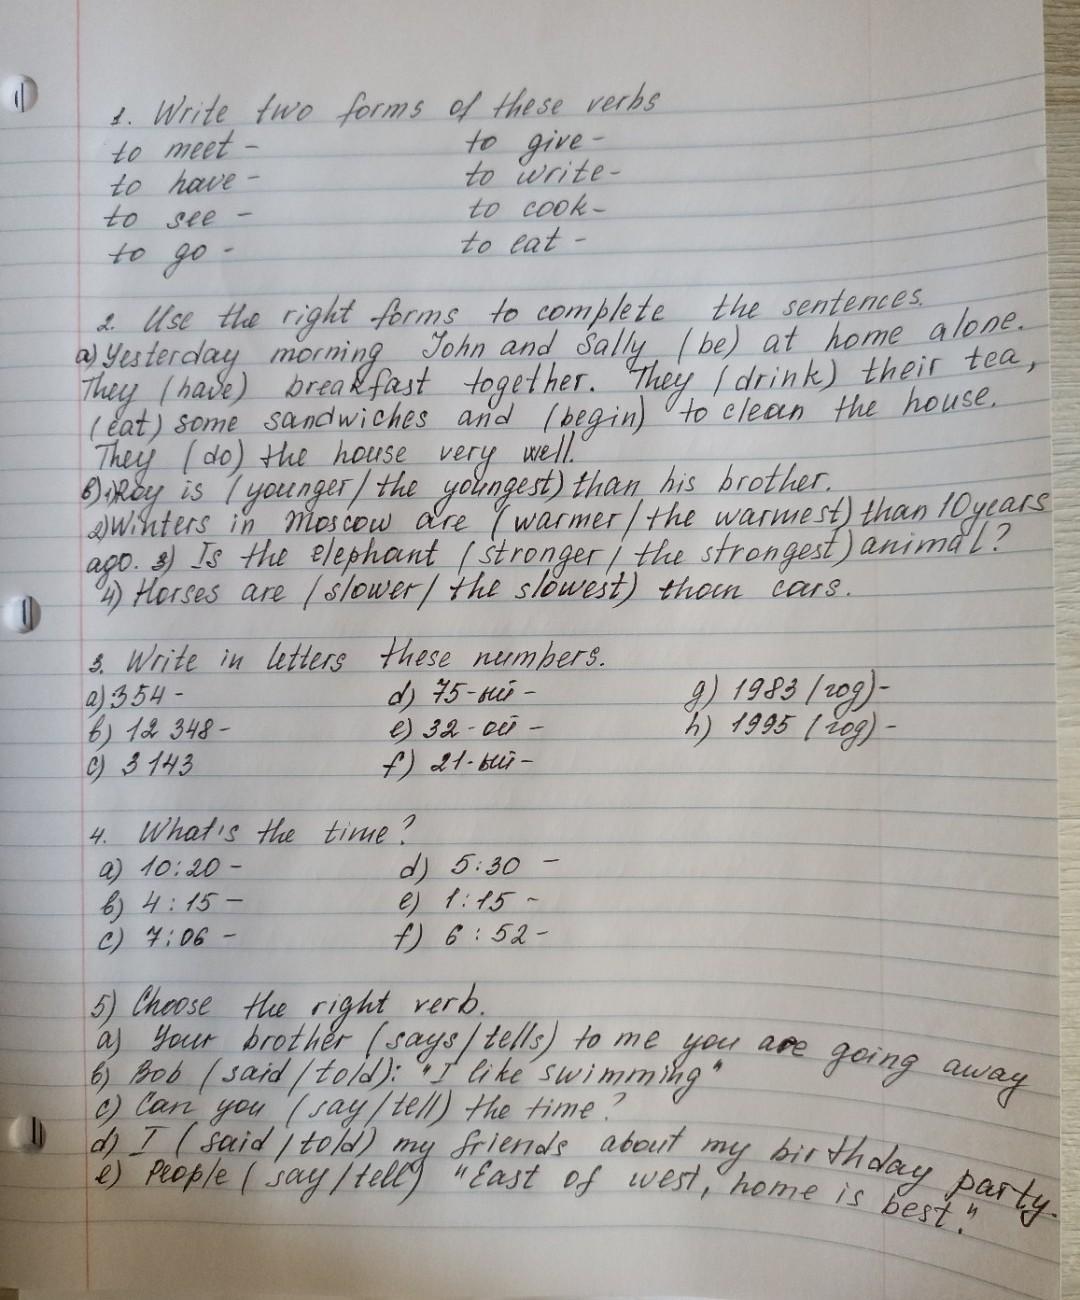 1. Write two forms of these verbs
to meet - to give -
to have - to write -
to see - to cook -
to go - to eat -
2. Use the right forms to complete the sentences.
a) Yesterday morning John and Sally (be) at home alone.
They (have) breakfast together. They (drink) their tea,
(eat) some sandwiches and (begin) to clean the house.
They (do) the house very well.
в) 1) Roy is (younger / the youngest) than his brother.
2) Winters in Moscow are (warmer / the warmest) than 10 years
ago. 3) Is the elephant (stronger / the strongest) animal?
4) Horses are (slower / the slowest) than cars.
3. Write in letters these numbers.
a) 354 - d) 75-ый - g) 1983 (год) -
b) 12 348 - e) 32-ой - h) 1995 (год) -
c) 3 143 f) 21-ый -
4. What's the time?
a) 10:20 - d) 5:30 -
b) 4:15 - e) 1:15 -
c) 7:06 - f) 6:52 -
5) Choose the right verb.
a) Your brother (says / tells) to me you are going away
b) Bob (said / told): "I like swimming"
c) Can you (say / tell) the time?
d) I (said / told) my friends about my birthday party.
e) People (say / tell) "East of west, home is best."